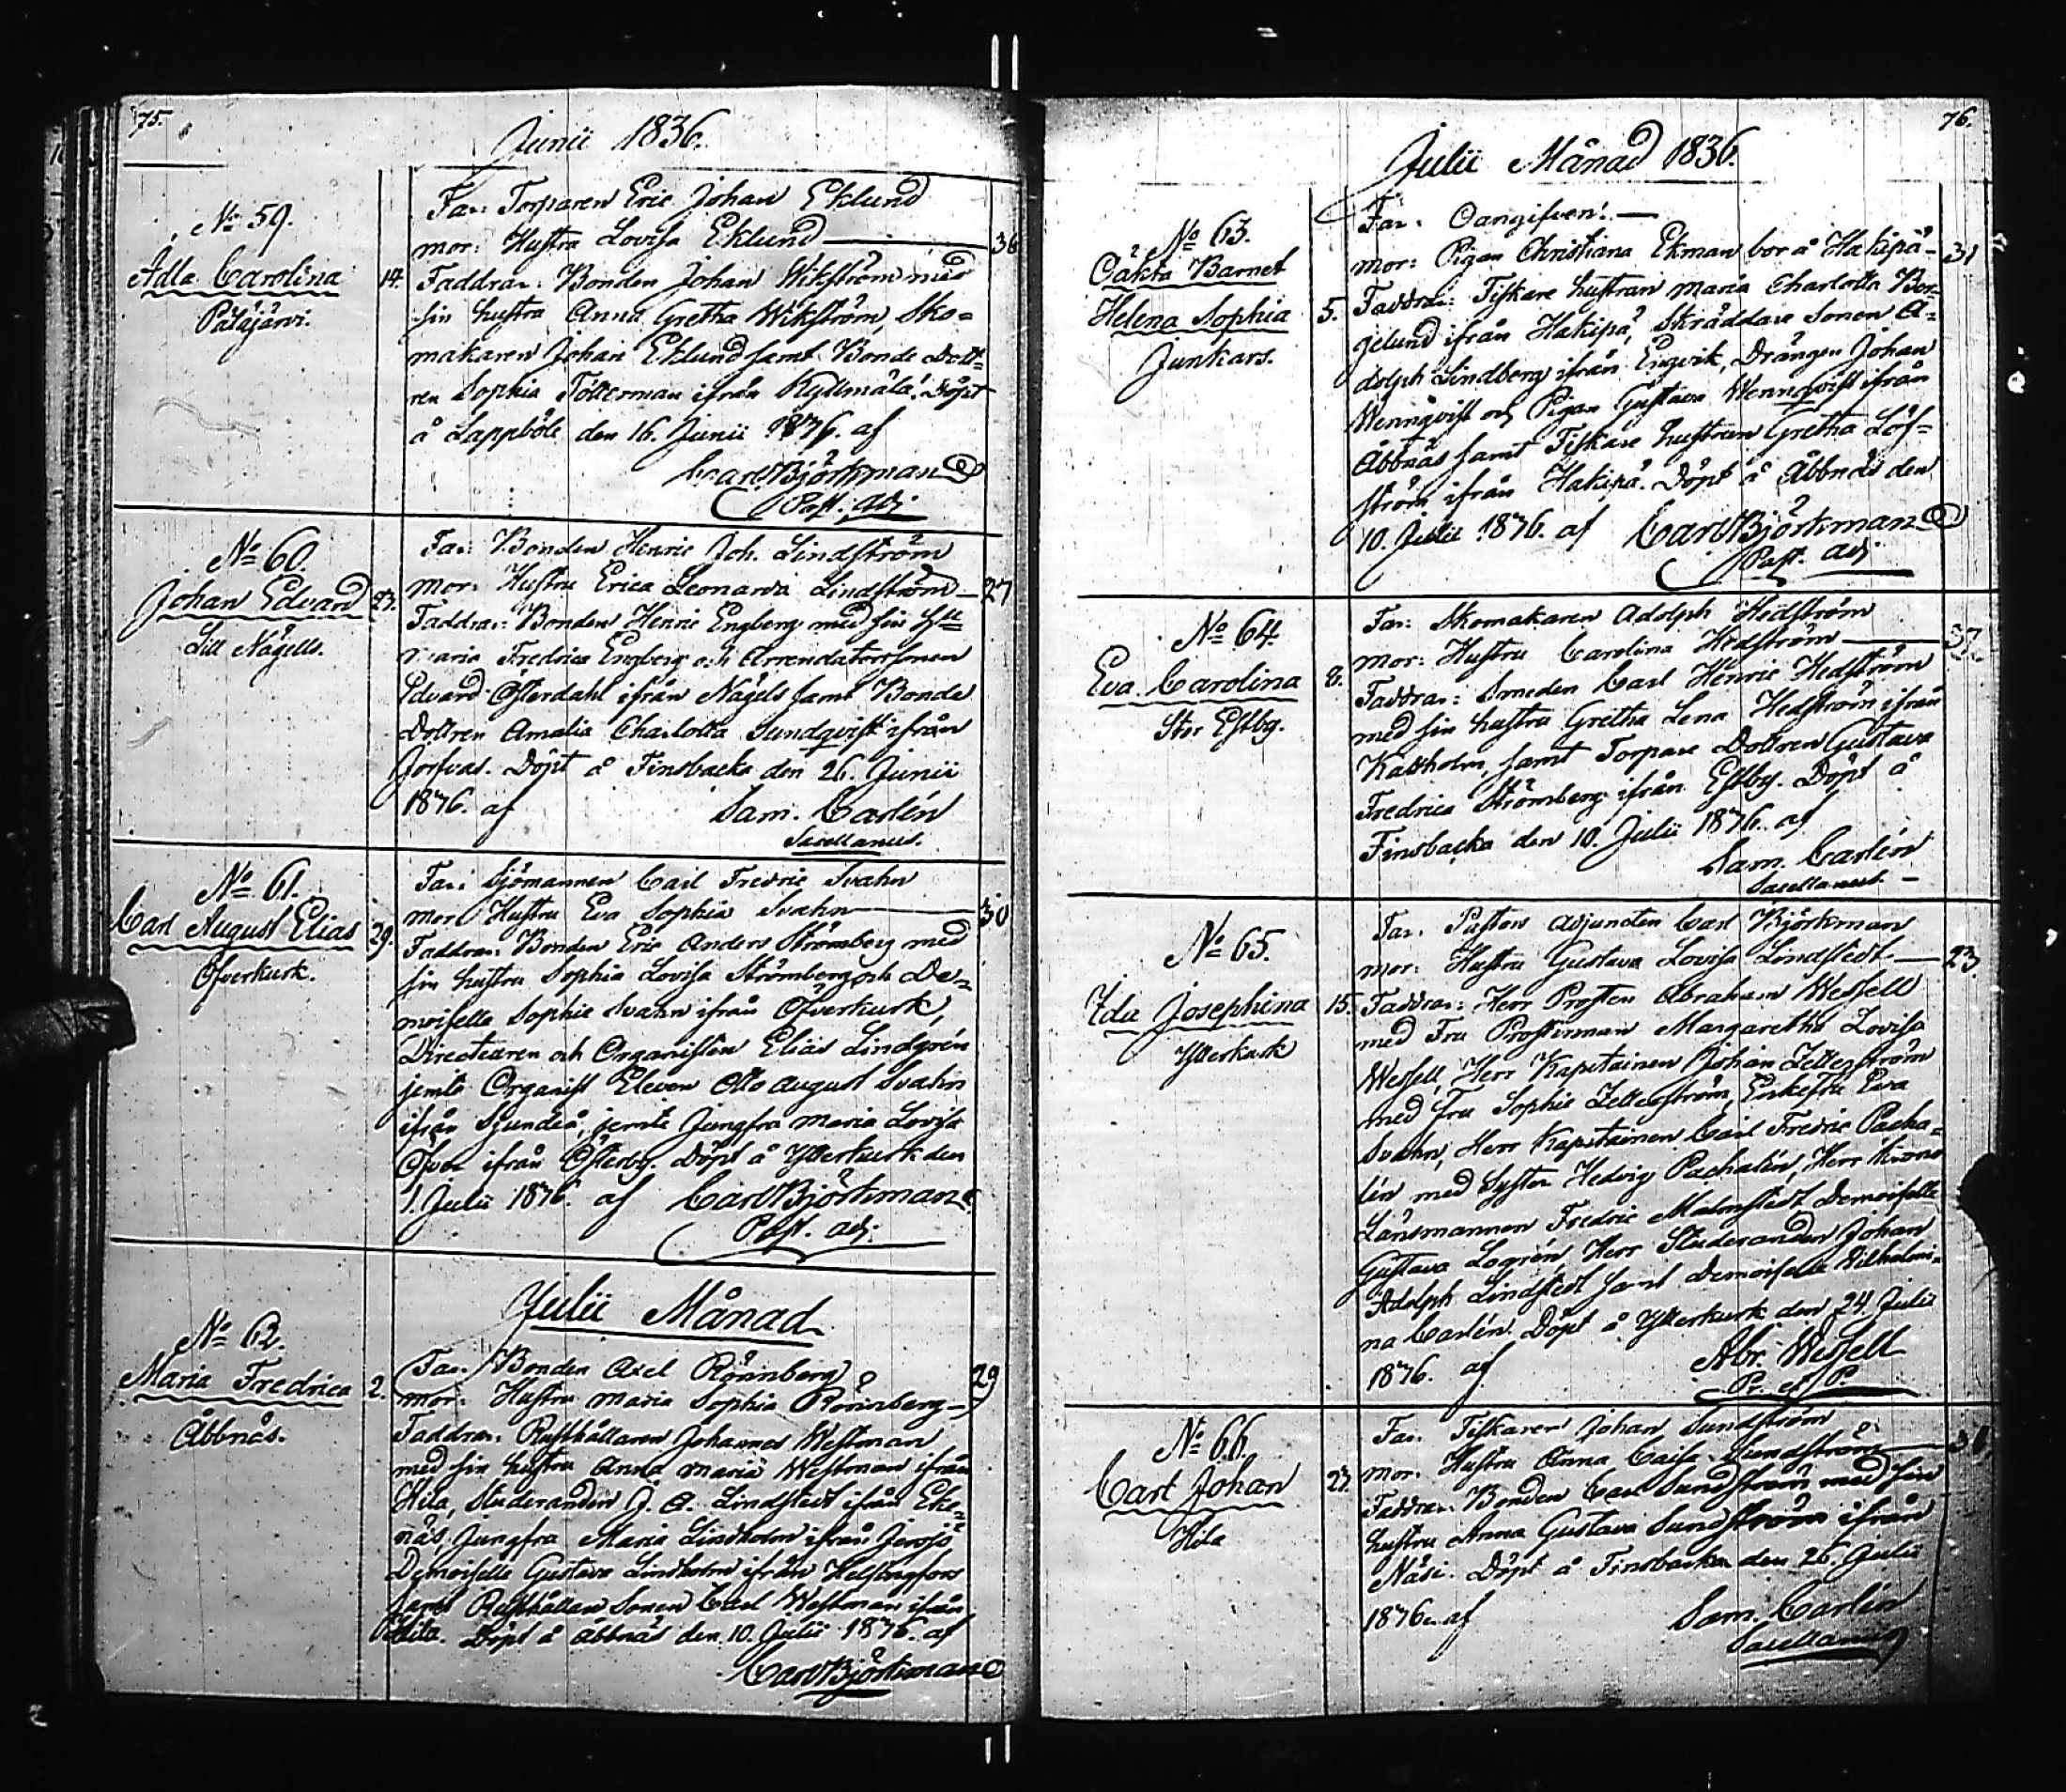 75.
Junii 1836.
No 59.
Adla Carolina
Pätäjärvi.
14.
Far: Torparen Eric Johan Eklund
mor: Hustru Lovisa Eklund — 36
Faddrar: Bonden Johan Wikström med
sin hustru Anna Gretha Wikström, Sko=
makaren Johan Eklund samt Bonde Dott=
ren Sophia Töllerman ifrån Kyllmälä. Döpt
å Lappböle den 16. Junii 1836. af
Carl Björkman
Past. adj.
No 60.
Johan Edvard
Lill Nägells.
23.
Far: Bonden Henric Joh. Lindström
mor: Hustru Erica Leonarda Lindström — 27
Faddrar: Bonden Henric Engberg med sin Hu
Maria Fredrica Engberg och Arrendators sonen
Edvard Österdahl ifrån Nägels samt Bonde
Dottren Amalia Charlotta Sundqvist ifrån
Jorfvas. Döpt å Finsbacka den 26. Junii
1836. af Sam. Carlén
Sacellanus.
No 61.
Carl August Elias
Öfverkurk.
29.
Far: Sjömannen Carl Fredric Svahn
mor: Hustru Eva Sophia Svahn — 30
Faddrar: Bonden Eric Anders Strömberg med
sin hustru Sophia Lovisa Strömberg och De=
moiselle Sophie Svahn ifrån Öfverkurk,
Directeuren och Organisten Elias Lindgrén
jemte Organist Eleven Otto August Svahn
ifrån Sjundeå, jemte Jungfru Maria Lovisa
ifrån Österby. Döpt å Ytterkurk den
1. Julii 1836. af Carl Björkman
Past. adj.
Julii Månad
No 62.
Maria Fredrica
Åbbnäs.
2.
Far: Bonden Axel Rönnberg
mor: Hustru Maria Sophia Rönnberg — 29
Faddrar: Rusthållaren Johannes Westman
med sin hustru Anna Maria Westman ifrån
Hila, Studeranden J. A. Lindstedt ifrån Eke=
näs, Jungfru Maria Lindholm ifrån
Demoiselle Gustava Lindholm ifrån Helsingfors
samt Rusthållare Sonen Carl Westman ifrån
Hila. Döpt å Åbbnäs den 10. Julii 1836. af
Carl Björkman
76.
Julii Månad 1836.
No 63.
Oäkta Barnet
Helena Sophia
Junkars.
5.
Far: Oangifven. —
mor: Pigan Christina Ekman bor å Hakipä — 31
Faddrar: Fiskare hustrun Maria Charlotta Ber=
gelund ifrån Hakipä, Skräddare Sonen A=
dolph Lindberg ifrån Engvik, Drängen Johan
Wennqvist och Pigan Gustava Wennqvist ifrån
Åbbnäs samt Fiskare hustrun Gretha Löf=
ström ifrån Hakipä. Döpt å Åbbnäs den
10. Julii 1836. af Carl Björkman
Past. adj.
No 64.
Eva Carolina
Stor Estby.
8.
Far: Skomakaren Adolph Hedström
mor: Hustru Carolina Hedström — 37
Faddrar: Smeden Carl Henric Hedström
med sin hustru Gretha Lena Hedström ifrån
Kattholm, samt Torpare Dottren Gustava
Fredrica Strömberg ifrån Estby. Döpt å
Finsbacka den 10. Julii 1836. af
Sam. Carlén
Sacellanus. —
No 65.
Ida Josephina
Ytterkurk
15.
Far: Pastors Adjuncten Carl Björkman
mor: Hustru Gustava Lovisa Lindstedt. — 23.
Faddrar: Herr Prosten Abraham Wessell
med Fru Prostinnan Margaretha Lovisa
Wessell, Herr Kapitainen Johan Zetterström
med Fru Sophie Zetterström, Enkefru Eva
Svahn, Herr Kapitainen Carl Fredric Pacha=
lén med Syster Hedvig Pachalén, Herr Krono
Länsmannen Fredric Malmstedt, Demoiselle
Gustava Logrén, Herr Studeranden Johan
Adolph Lindstedt samt Demoiselle Wilhelmi=
na Carlén. Döpt å Ytterkurk den 24. Julii
1836. af Abr. Wessell
Pr. et P.
No 66.
Carl Johan
Hila
23.
Far: Fiskaren Johan Sundström
mor: Hustru Anna Caisa Sundström —
Faddrar: Bonden Carl Sundström med sin
hustru Anna Gustava Sundström ifrån
Näsi. Döpt å Finsbacka den 26. Julii
1836. af Sam. Carlén
Sacellanus